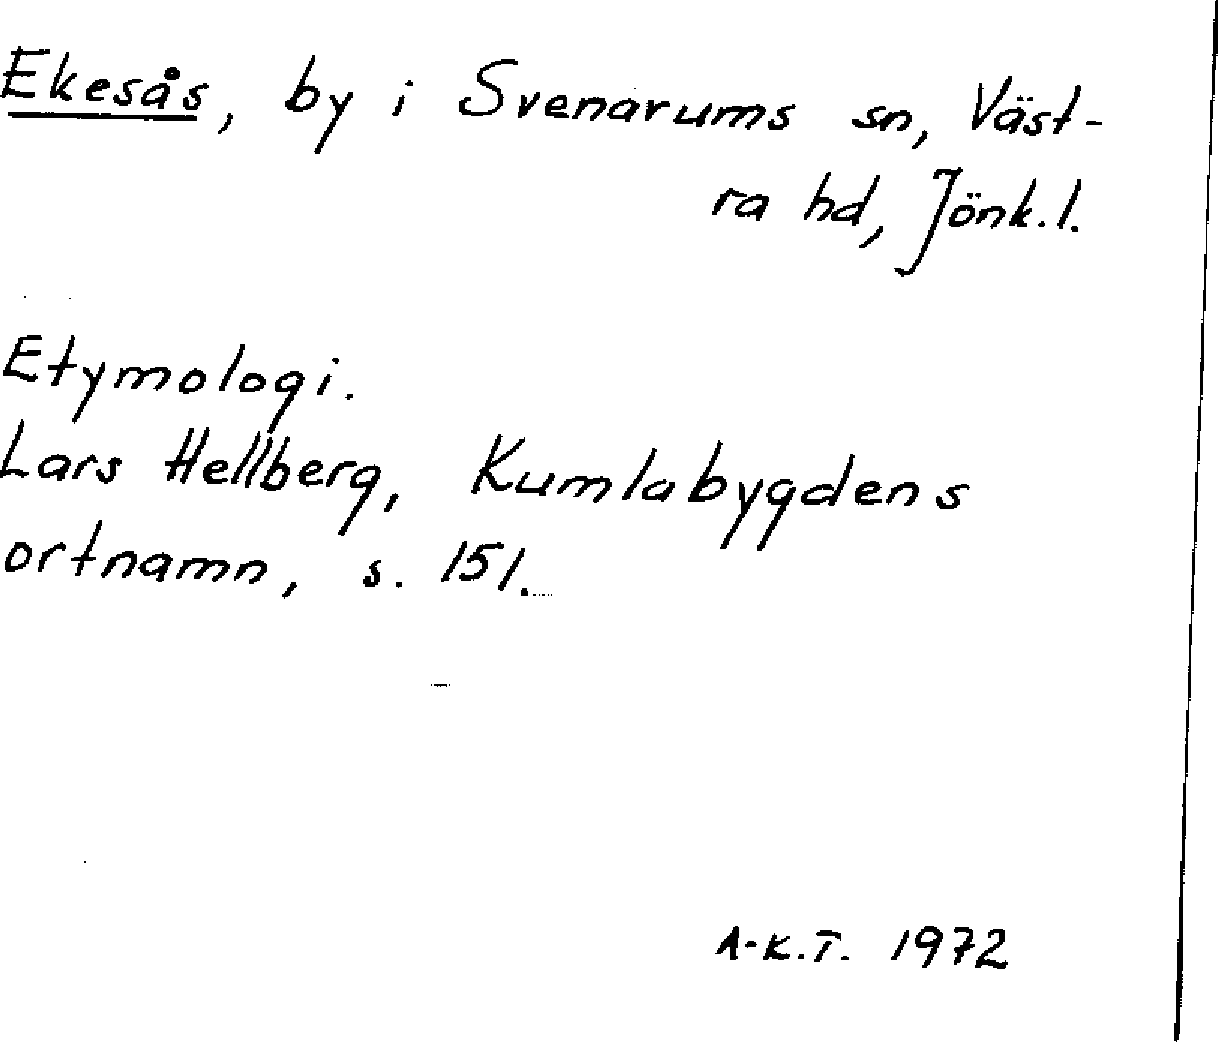 Ekesås, by i Svenarums sn, Väst-
ra hd, Jönk.l.
Etymologi.
Lars Hellberg, Kumlabygdens
ortnamn, s. 151.
A-K.T. 1972